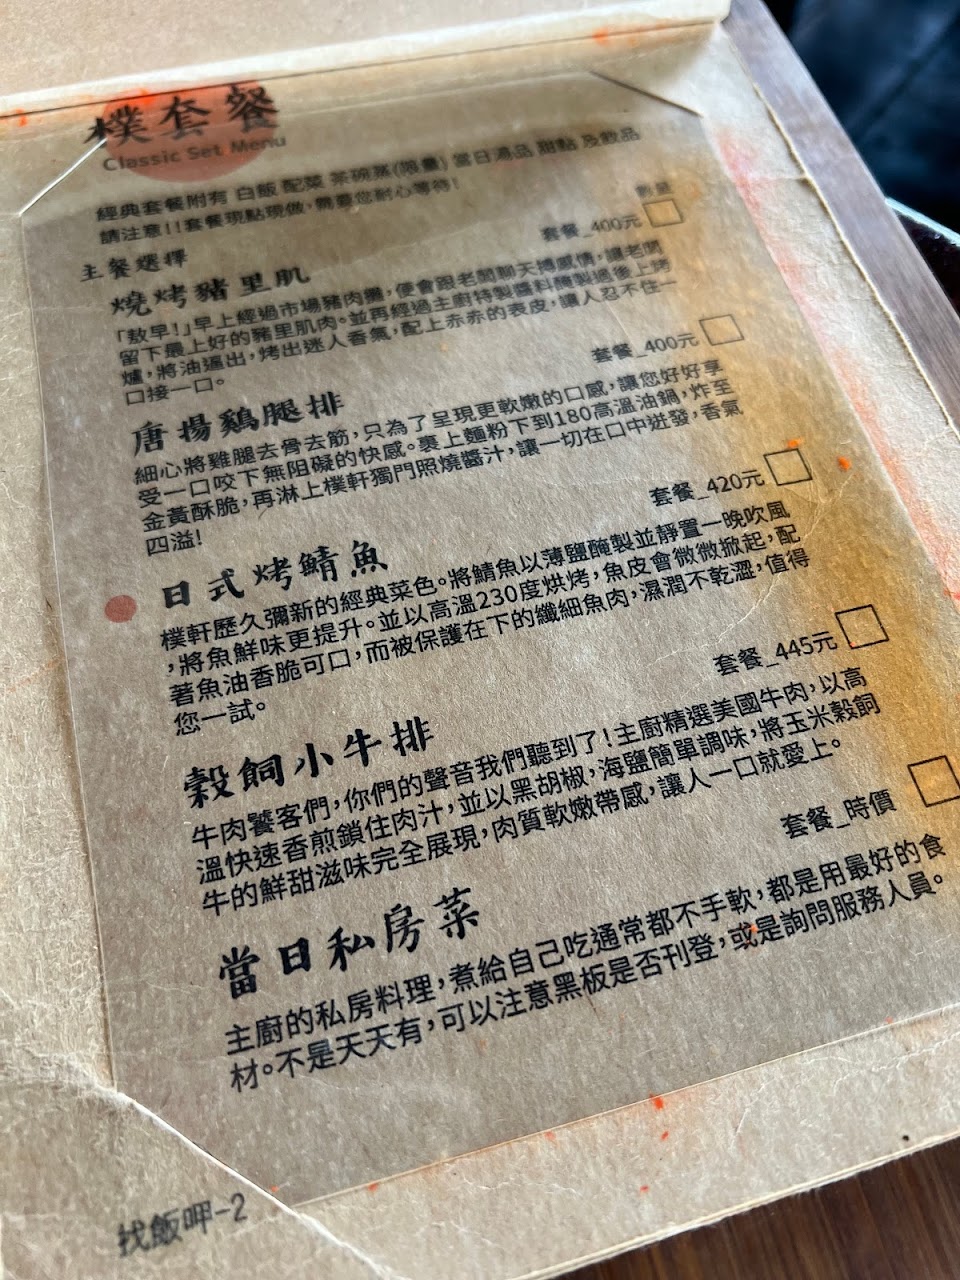 樸套餐
Classic Set Menu
經典套餐附有 白飯 配菜 茶碗蒸(限量) 當日湯品 甜點 及飲品
請注意!!套餐現點現做,需要您耐心等待!
數量
主餐選擇
套餐_400元
燒烤豬里肌
「敖早!」早上經過市場豬肉攤,便會跟老闆聊天搏感情,讓老闆
留下最上好的豬里肌肉。並再經過主廚特製醬料醃製過後上烤
爐,將油逼出,烤出迷人香氣,配上赤赤的表皮,讓人忍不住一
口接一口。
套餐_400元
唐揚鷄腿排
細心將雞腿去骨去筋,只為了呈現更軟嫩的口感,讓您好好享
受一口咬下無阻礙的快感。裹上麵粉下到180高溫油鍋,炸至
金黃酥脆,再淋上樸軒獨門照燒醬汁,讓一切在口中迸發,香氣
四溢!
套餐_420元
日式烤鯖魚
樸軒歷久彌新的經典菜色。將鯖魚以薄鹽醃製並靜置一晚吹風
,將魚鮮味更提升。並以高溫230度烘烤,魚皮會微微掀起,配
著魚油香脆可口,而被保護在下的纖細魚肉,濕潤不乾澀,值得
您一試。
套餐_445元
穀飼小牛排
牛肉饕客們,你們的聲音我們聽到了!主廚精選美國牛肉,以高
溫快速香煎鎖住肉汁,並以黑胡椒,海鹽簡單調味,將玉米穀飼
牛的鮮甜滋味完全展現,肉質軟嫩帶感,讓人一口就愛上。
套餐_時價
當日私房菜
主廚的私房料理,煮給自己吃通常都不手軟,都是用最好的食
材。不是天天有,可以注意黑板是否刊登,或是詢問服務人員。
找飯呷-2